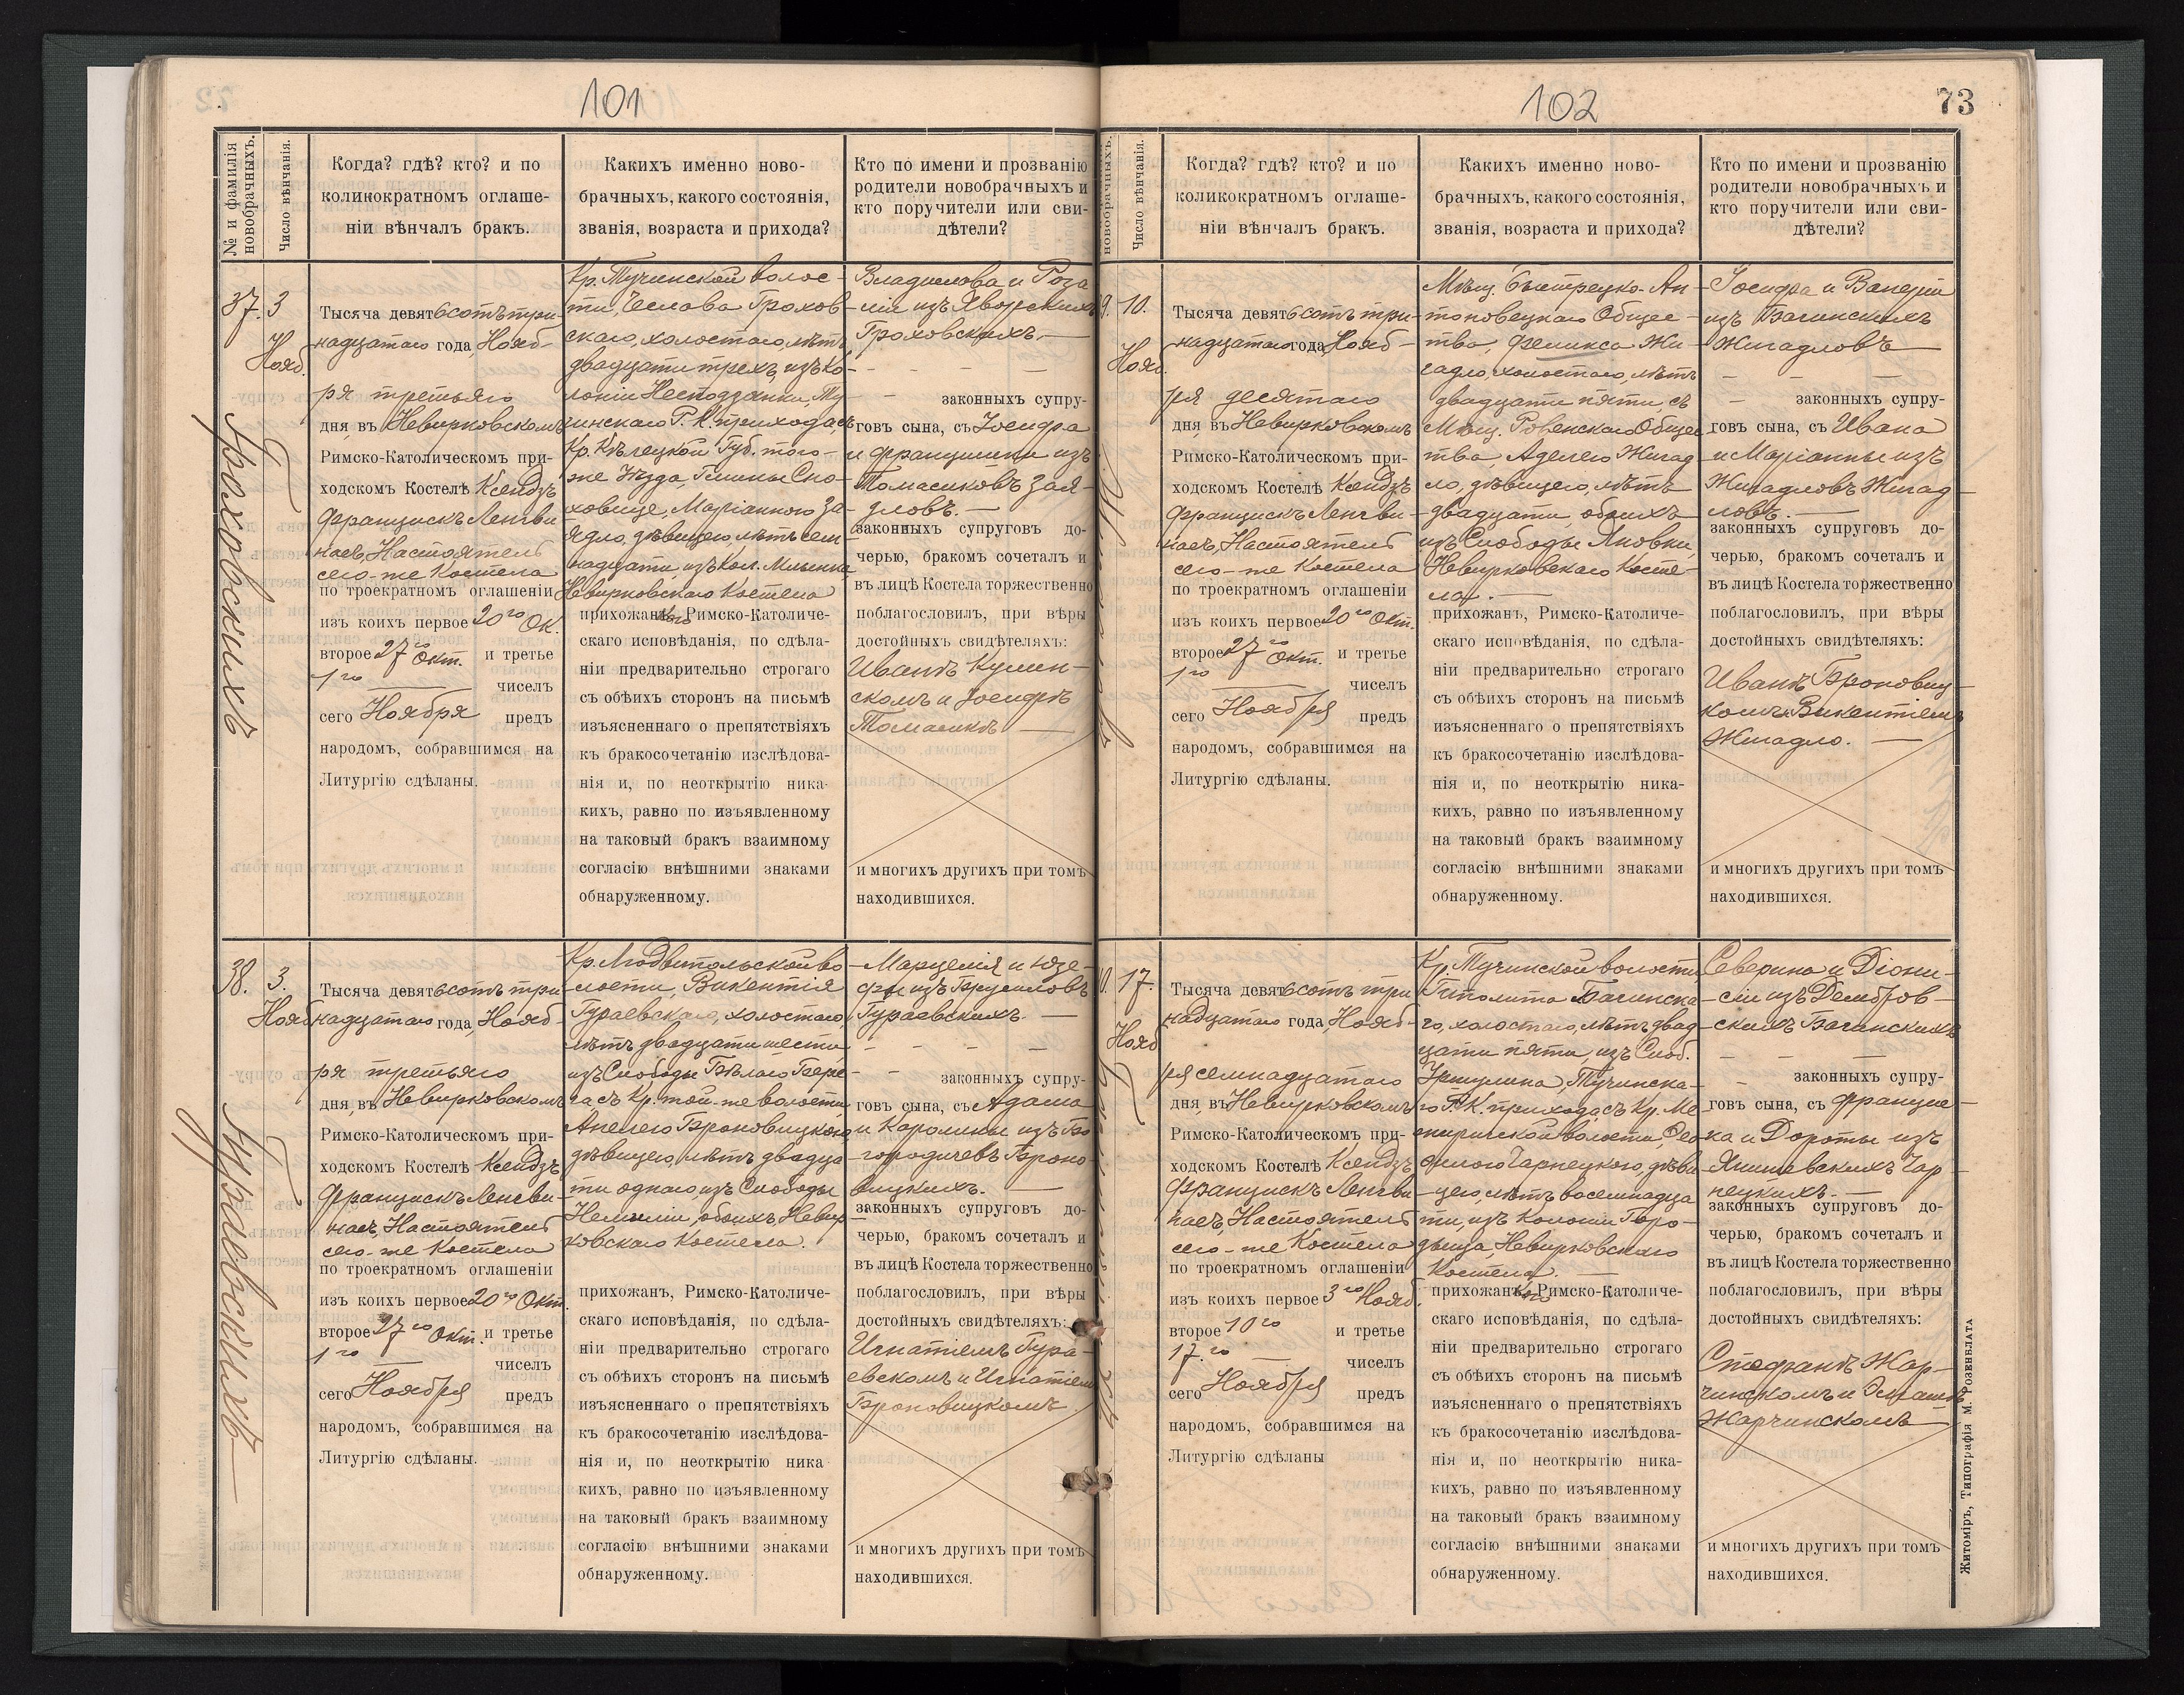 101
№ и фамилія новобрачныхъ.
Число вѣнчанія.
Когда? гдѣ? кто? и по
коликократномъ оглаше-
ніи вѣнчалъ бракъ.
Какихъ именно ново-
брачныхъ, какого состоянія,
званія, возраста и прихода?
Кто по имени и прозванію
родители новобрачныхъ и
кто поручители или сви-
дѣтели?
37.
Гроховскихъ
3
Нояб.
Тысяча девятьсотъ три-
надцатаго года, Нояб-
ря третьяго
дня, въ Невирковскомъ
Римско-Католическомъ при-
ходскомъ Костелѣ Ксендзъ
Францискъ Ленгви-
насъ, Настоятель
сего-же Костела
по троекратномъ оглашеніи
изъ коихъ первое 20го Ок.
второе 27го Окт. и третье
1го чиселъ
сего Ноября предъ
народомъ, собравшимся на
Литургію сдѣланы.
Кр. Тучинской волос-
ти, Чеслава Грохов-
скаго, холостаго, лѣтъ
двадцати трехъ, изъ Ко-
лоніи Несподзянки, Ту-
чинскаго Р. К. прихода, съ
Кр. Кѣлецкой Губ. того-
же Уѣзда, Гмины Сно-
ховице, Маріанною За-
ядло, дѣвицею, лѣтъ сем-
надцати, изъ Кол. Млынка
Невирковскаго Костела
прихожанкою, Римско-Католиче-
скаго исповѣданія, по сдѣла-
ніи предварительно строгаго
съ обѣихъ сторонъ на письмѣ
изъясненнаго о препятствіяхъ
къ бракосочетанію изслѣдова-
нія и, по неоткрытію ника-
кихъ, равно по изъявленному
на таковый бракъ взаимному
согласію внѣшними знаками
обнаруженному.
Владислова и Роза
ліи изъ Яворскихъ
Гроховскихъ. —
законныхъ супру-
говъ сына, съ Іосифа
и Францишки изъ
Томасиковъ Зая-
дловъ. —
законныхъ супруговъ до-
черью, бракомъ сочеталъ и
въ лицѣ Костела торжественно
поблагословилъ, при вѣры
достойныхъ свидѣтеляхъ:
Иванѣ Кулин-
скомъ и Іосифѣ
Томасикъ —
и многихъ другихъ при томъ
находившихся.
38.
Гураевскихъ
3.
Нояб.
Тысяча девятьсотъ три-
надцатаго года, Нояб-
ря третьяго
дня, въ Невирковскомъ
Римско-Католическомъ при-
ходскомъ Костелѣ Ксендзъ
Францискъ Ленгви-
насъ, Настоятель
сего-же Костела
по троекратномъ оглашеніи
изъ коихъ первое 20го Окт.
второе 27го Окт. и третье
1го чиселъ
сего Ноября предъ
народомъ, собравшимся на
Литургію сдѣланы.
Кр. Людвипольской во
лости, Викентія
Гураевскаго, холостаго,
лѣтъ двадцати шести,
изъ Слободы Бѣлаго Бере-
га съ Кр. той-же волости
Анелею Броновицкою
дѣвицею, лѣтъ двадца
ти одного, изъ Слободы
Немиліи, обоихъ Невир-
ковскаго Костела.
прихожанъ, Римско-Католиче-
скаго исповѣданія, по сдѣла-
ніи предварительно строгаго
съ обѣихъ сторонъ на письмѣ
изъясненнаго о препятствіяхъ
къ бракосочетанію изслѣдова-
нія и, по неоткрытію ника
кихъ, равно по изъявленному
на таковый бракъ взаимному
согласію внѣшними знаками
обнаруженному.
Марцелія и Юзе-
фы изъ Брусиловъ
Гураевскихъ. —
законныхъ супру-
говъ сына, съ Адама
и Каролины изъ Бо
городичевъ Броно-
вицкихъ. —
законныхъ супруговъ до-
черью, бракомъ сочеталъ и
въ лицѣ Костела торжественно
поблагословилъ, при вѣры
достойныхъ свидѣтеляхъ:
Игнатіемъ Гура-
евскомъ и Игнатіемъ
Броновицкомъ.
и многихъ другихъ при томъ
находившихся.
102
73
новобрачныхъ.
Число вѣнчанія.
Когда? гдѣ? кто? и по
коликократномъ оглаше-
ніи вѣнчалъ бракъ.
Какихъ именно ново-
брачныхъ, какого состоянія,
званія, возраста и прихода?
Кто по имени и прозванію
родители новобрачныхъ и
кто поручители или сви-
дѣтели?
9.
10.
Нояб.
Тысяча девятьсотъ три-
надцатаго года, Нояб-
ря десятаго
дня, въ Невирковскомъ
Римско-Католическомъ при-
ходскомъ Костелѣ Ксендзъ
Францискъ Ленгви-
насъ, Настоятель
сего-же Костела
по троекратномъ оглашеніи
изъ коихъ первое 20го Окт.
второе 27го Окт. и третье
1го чиселъ
сего Ноября предъ
народомъ, собравшимся на
Литургію сдѣланы.
Мѣщ. Быстрецко-Ан-
тоновецкаго Общес-
тва, Феликса Жи-
гадло, холостаго, лѣтъ
двадцати пяти, съ
Мѣщ. Ровенскаго Общес
тва, Аделею Жигад
ло, дѣвицею, лѣтъ
двадцати, обоихъ
изъ Слободы Яновки,
Невирковскаго Косте-
ла. —
прихожанъ, Римско-Католиче-
скаго исповѣданія, по сдѣла-
ніи предварительно строгаго
съ обѣихъ сторонъ на письмѣ
изъясненнаго о препятствіяхъ
къ бракосочетанію изслѣдова-
нія и, по неоткрытію ника-
кихъ, равно по изъявленному
на таковый бракъ взаимному
согласію внѣшними знаками
обнаруженному.
Іосифа и Валеріи
изъ Багинскихъ
Жигадловъ —
законныхъ супру-
говъ сына, съ Ивана
и Маріанны изъ
Жигадловъ Жигад-
ловъ. —
законныхъ супруговъ до-
черью, бракомъ сочеталъ и
въ лицѣ Костела торжественно
поблагословилъ, при вѣры
достойныхъ свидѣтеляхъ:
Иванѣ Броновиц-
комъ Викентіемъ
Жигадло. —
и многихъ другихъ при томъ
находившихся.
17.
Нояб
Тысяча девятьсотъ три-
надцатаго года, Нояб-
ря семнадцатаго
дня, въ Невирковскомъ
Римско-Католическомъ при-
ходскомъ Костелѣ Ксендзъ
Францискъ Ленгви-
насъ, Настоятель
сего-же Костела
по троекратномъ оглашеніи
изъ коихъ первое 3го Нояб.
второе 10го и третье
17.го чиселъ
сего Ноября предъ
народомъ, собравшимся на
Литургію сдѣланы
Кр. Тучинской волости,
Гиполита Багинска-
го, холостаго, лѣтъ двад
цати пяти, изъ Слоб.
Уршулина, Тучинска-
го Р. К. прихода, съ Кр. Ме-
жиричской волости, Фео-
филою Чарнецкою, дѣви
цею, лѣтъ восемнадца
ти, изъ Колоніи Горо-
дыща, Невирковскаго
Костела. —
прихожанкою Римско-Католиче-
скаго исповѣданія, по сдѣла-
ніи предварительно строгаго
съ обѣихъ сторонъ на письмѣ
изъясненнаго о препятствіяхъ
къ бракосочетанію изслѣдова-
нія и, по неоткрытію ника-
кихъ, равно по изъявленному
на таковый бракъ взаимному
согласію внѣшними знаками
обнаруженному.
Северина и Діони-
сіи изъ Демб[ров-
скихъ Багинскихъ
законныхъ супру-
говъ сына, съ Францис-
ка и Дороты изъ
Янишевскихъ Чар-
нецкихъ. —
законныхъ супруговъ до-
черью, бракомъ сочеталъ и
въ лицѣ Костела торжественно
поблагословилъ, при вѣры
достойныхъ свидѣтеляхъ:
Стефанѣ Жар-
чинскомъ и
Жарчинскомъ
и многихъ другихъ при томъ
находившихся.
Житоміръ, Типографія М. Розенблата